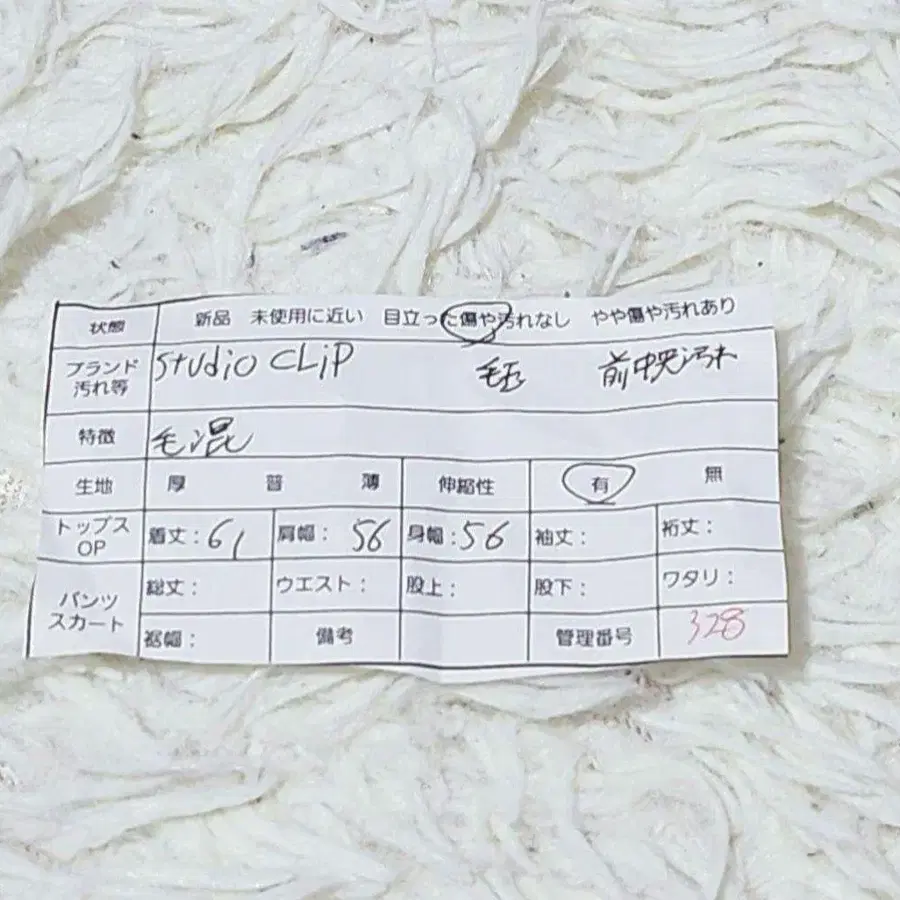 状態 新品 未使用に近い 目立った傷や汚れなし やや傷や汚れあり
ブランド 汚れ等 studio CLiP 毛玉 前中央汚れ
特徴 毛混
生地 厚 普 薄 伸縮性 有 無
トップス OP 着丈：61 肩幅：56 身幅：56 袖丈： 裄丈：
パンツ スカート 総丈： ウエスト： 股上： 股下： ワタリ：
裾幅： 備考 管理番号 328